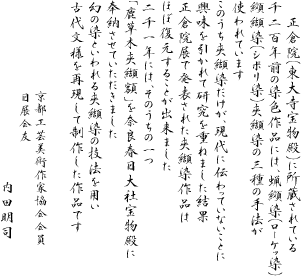 正倉院(東大寺宝物殿)に所蔵されている
千二百年前の染色作品には、蝋纈染(ローケツ染)
纐纈染(シボリ染)夾纈染の三種の手法が
使われています
このうち夾纈染だけが、現代に伝わっていないことに
興味を引かれて研究を重ねました結果
正倉院展で発表された夾纈染作品は
ほぼ復元することが出来ました
二千一年には、そのうちの一つ
「鹿草木夾纈額」を奈良春日大社宝物殿に
奉納させていただきました
幻の染といわれる夾纈染の技法を用い
古代文様を再現して制作した作品です
京都工芸美術作家協会会員
日展会友
内田明司